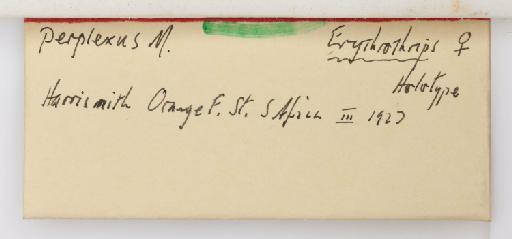 Perplexus M. Erythrothrips ♀
Holotype
Harrismith Orange F. St. S Africa III 1927